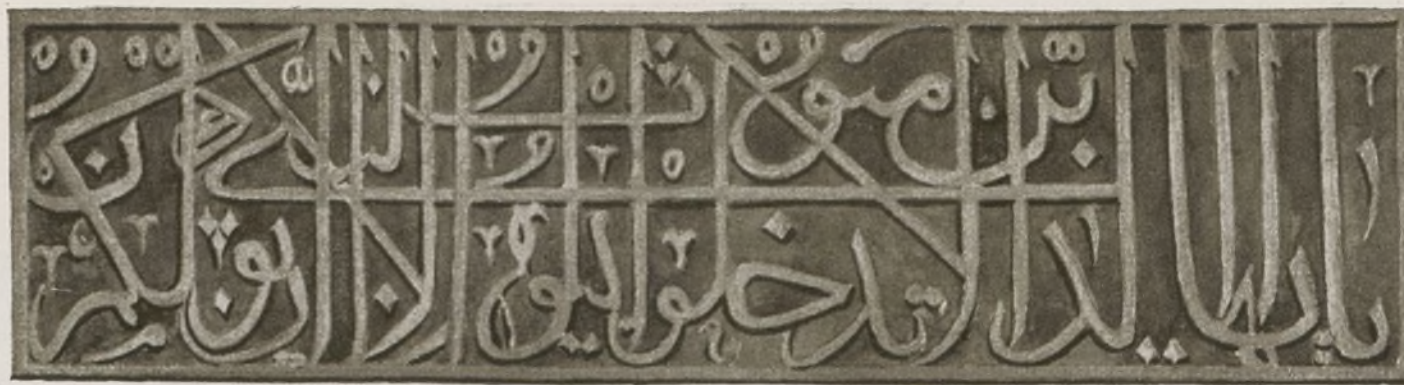 يا ايها الذين امنوا لا تدخلوا بيوت النبي الا ان يؤذن لكم